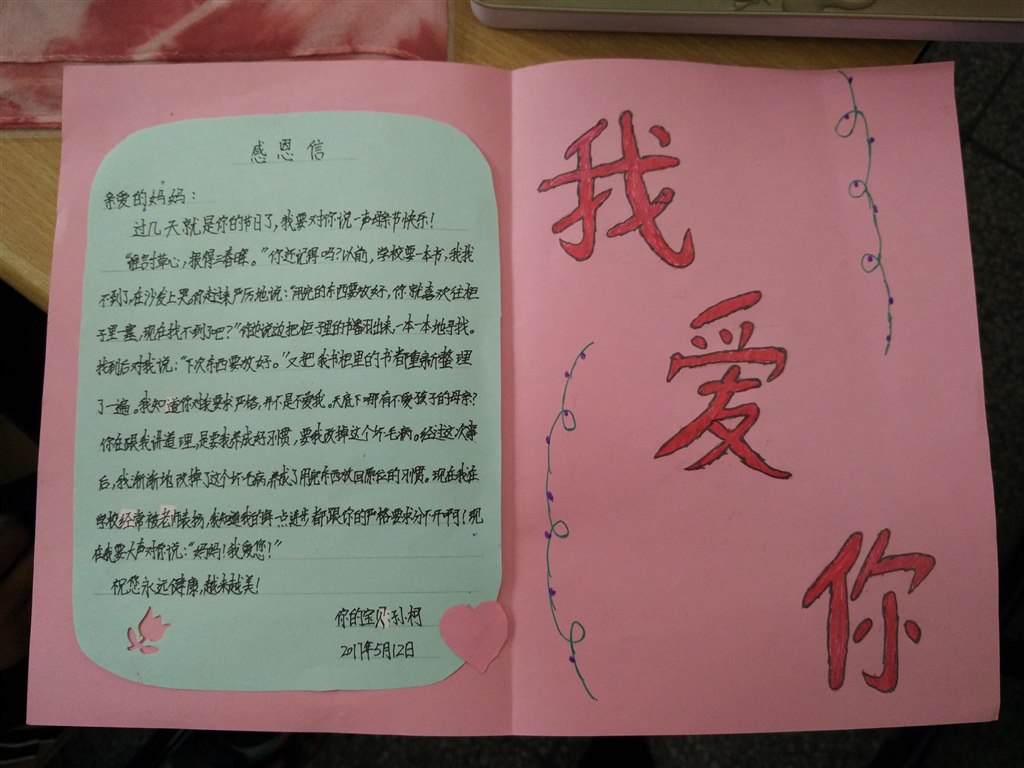 感恩信
亲爱的妈妈：
过几天就是你的节日了，我要对你说一声母亲节快乐！
“谁言寸草心，报得三春晖。”你还记得吗？以前，学校要一本书，我找
不到了，在沙发上哭，你赶过来严厉地说：“用完的东西要放好，你就喜欢往柜
子里一塞，现在找不到了吧？”你边说边把柜子里的书都翻出来，一本一本地寻找。
找到后对我说：“下次东西要放好。”又把我书柜里的书都重新整理
了一遍。我知道你对我要求严格，并不是不爱我。天底下哪有不爱孩子的母亲？
你在跟我讲道理，是要我养成好习惯，要我改掉这个坏毛病。经过这次事
后，我渐渐地改掉了这个坏毛病，养成了用完东西放回原位的习惯。现在我在
学校经常被老师表扬，我知道我的每一点进步都跟你的严格要求分不开啊！现
在我要大声对你说：“妈妈！我爱您！”
祝您永远健康，越来越美！
你的宝贝：孙柯
2017年5月12日
我
爱
你